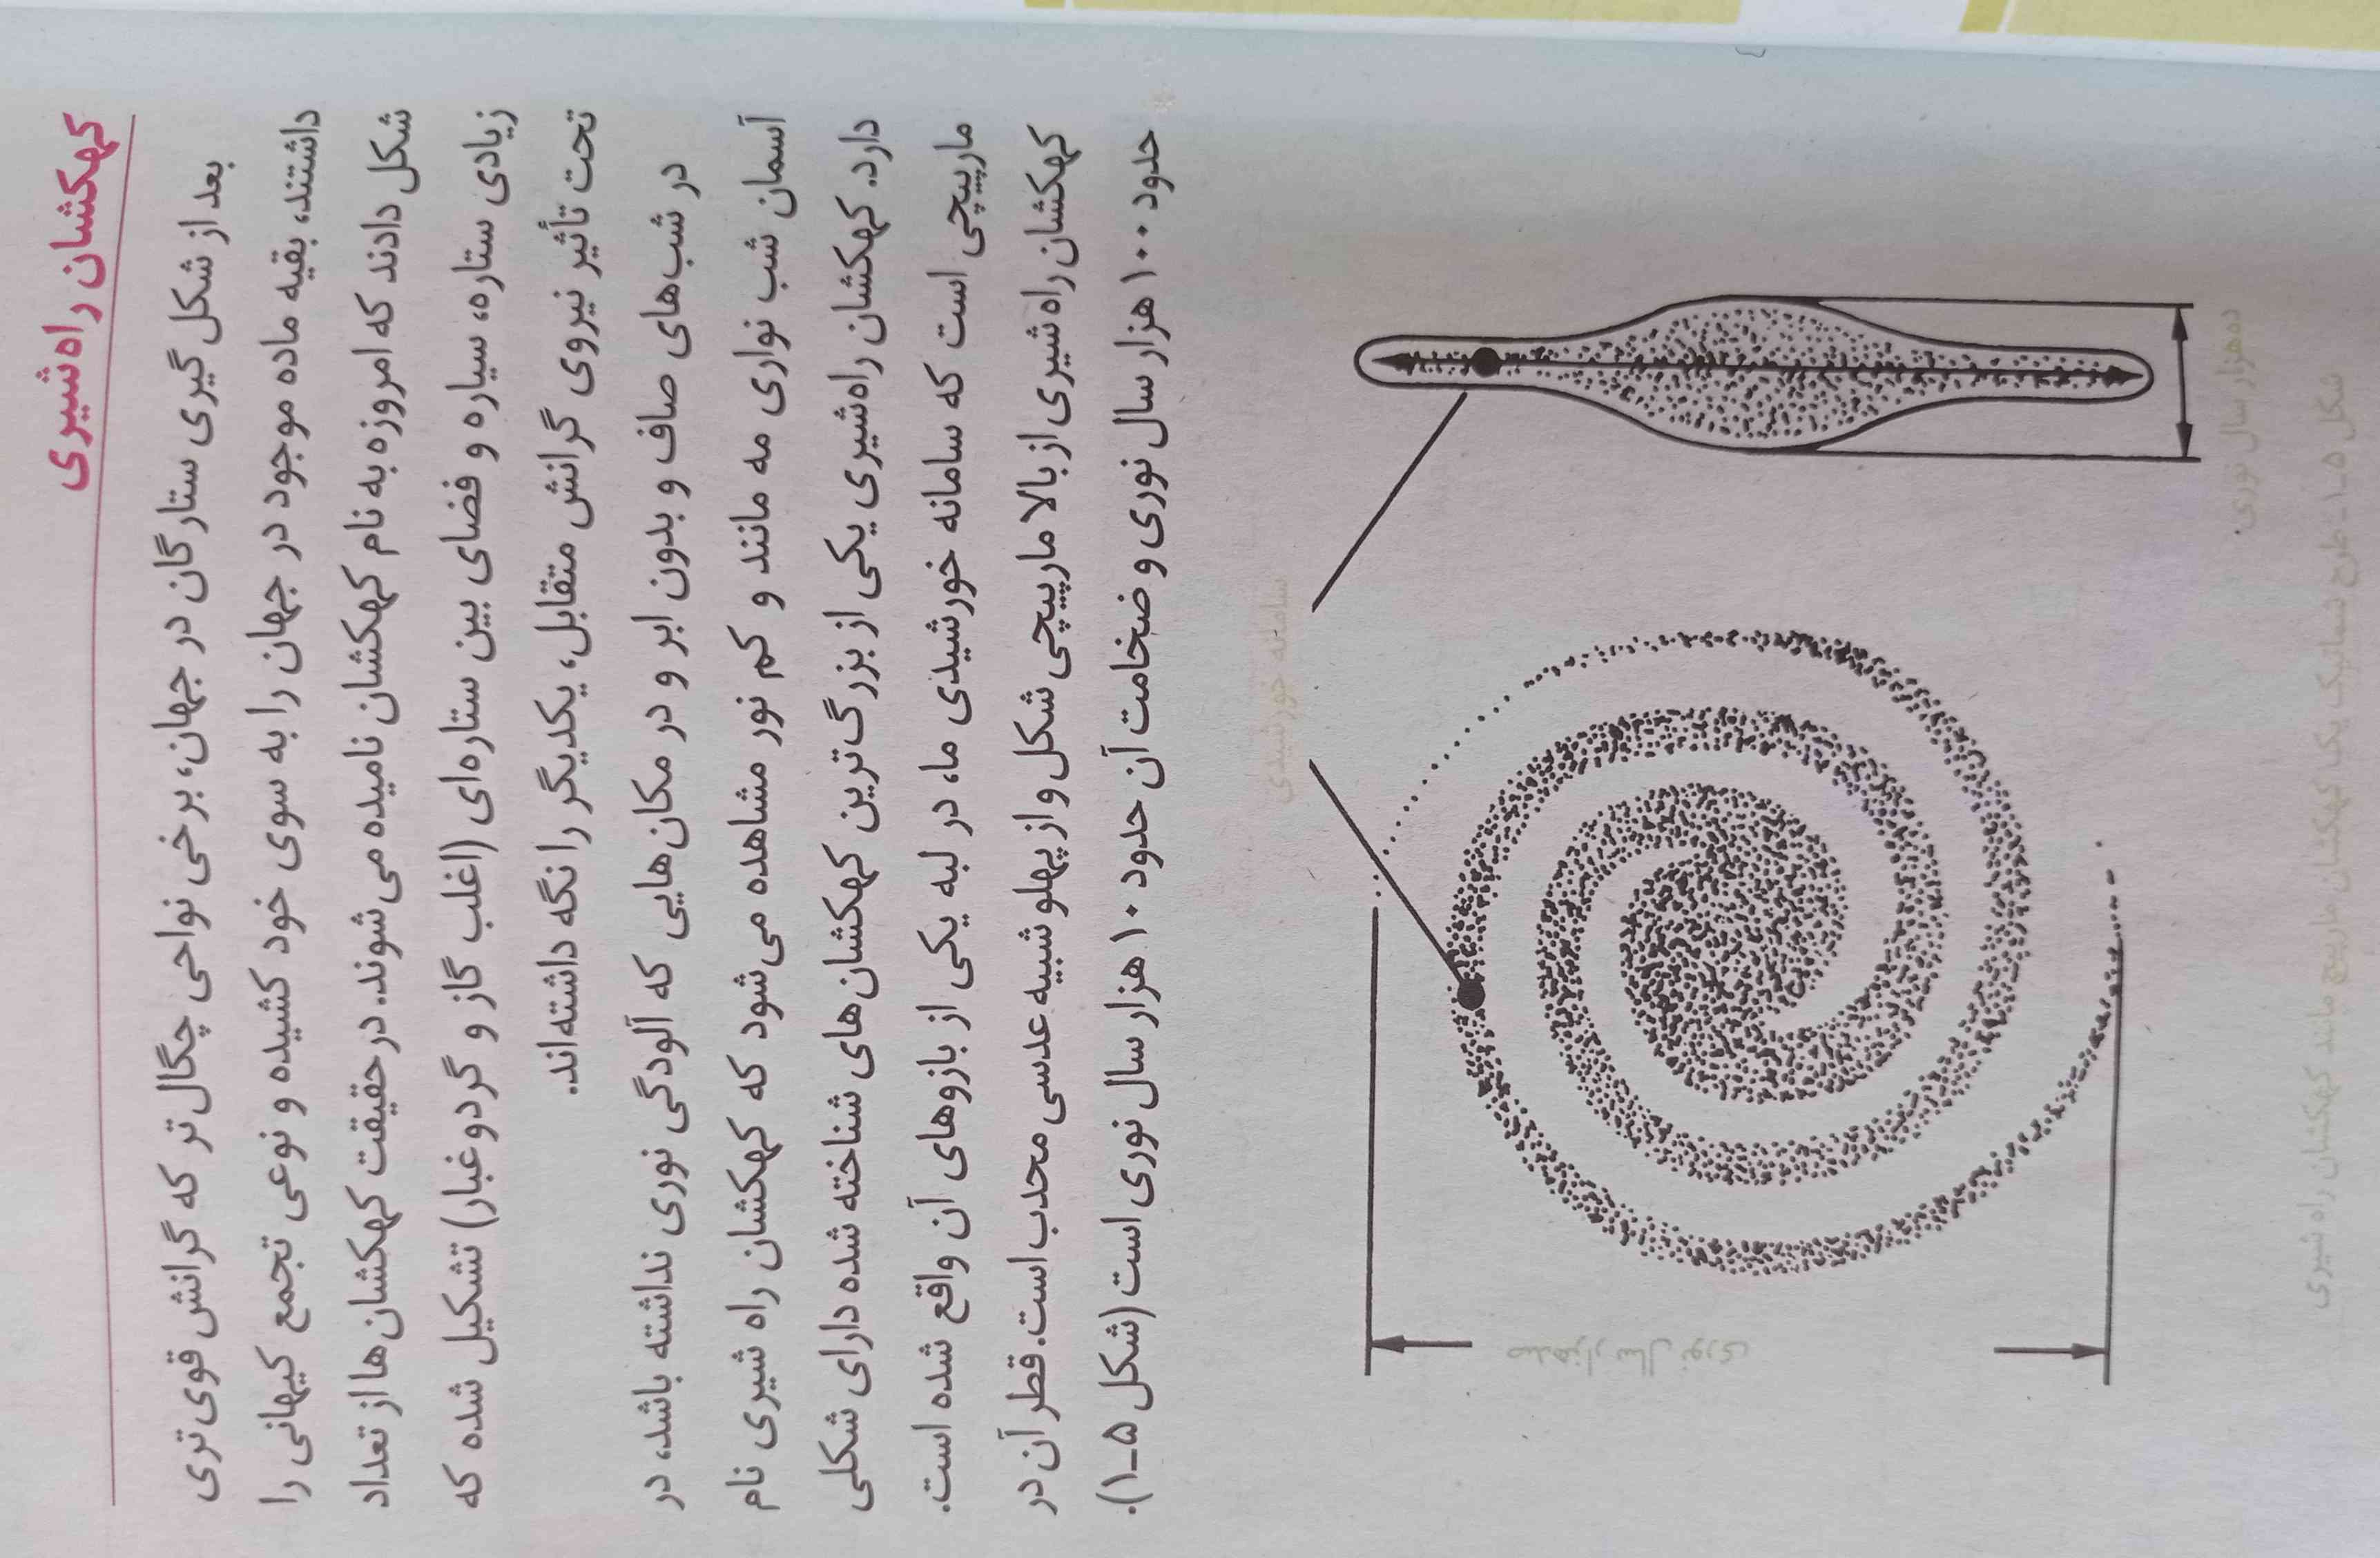 کهکشان راه شیری
بعد از شکل گیری ستارگان در جهان، برخی نواحی چگال تر که گرانش قوی تری
داشتند، بقیه ماده موجود در جهان را به سوی خود کشیده و نوعی تجمع کیهانی را
شکل دادند که امروزه به نام کهکشان نامیده می شوند. در حقیقت کهکشان ها از تعداد
زیادی ستاره، سیاره و فضای بین ستاره ای (اغلب گاز و گردوغبار) تشکیل شده که
تحت تأثیر نیروی گرانش متقابل، یکدیگر را نگه داشته اند.
در شب های صاف و بدون ابر و در مکان هایی که آلودگی نوری نداشته باشد، در
آسمان شب نواری مه مانند و کم نور مشاهده می شود که کهکشان راه شیری نام
دارد. کهکشان راه شیری یکی از بزرگ ترین کهکشان های شناخته شده دارای شکلی
مارپیچی است که سامانه خورشیدی ما، در لبه یکی از بازوهای آن واقع شده است.
کهکشان راه شیری از بالا مارپیچی شکل و از پهلو شبیه عدسی محدب است. قطر آن در
حدود ۱۰۰ هزار سال نوری و ضخامت آن حدود ۱۰ هزار سال نوری است (شکل ۵-۱).
سامانه خورشیدی
صدهزار سال نوری
ده هزار سال نوری
شکل ۵-۱- طرح شماتیک یک کهکشان مارپیچ مانند کهکشان راه شیری